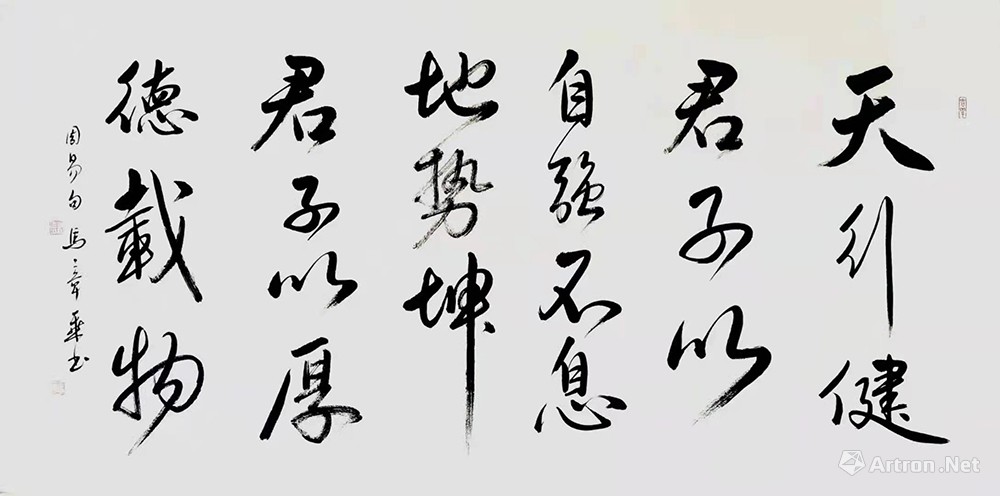 天行健
君子以
自強不息
地势坤
君子以厚
德載物
周易句 馬章乘书
Artron.Net